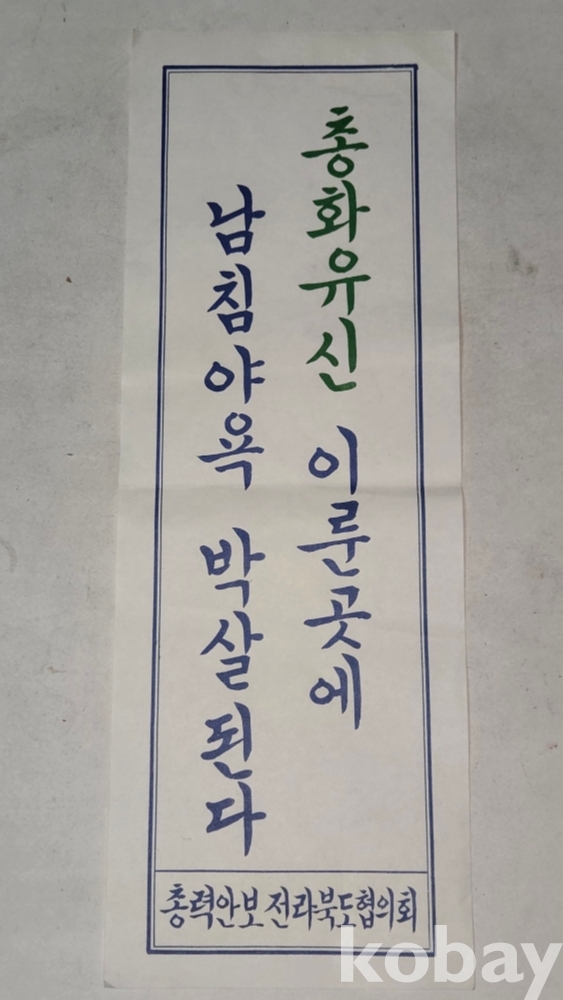 총화유신 이룬곳에
남침야욕 박살된다
총력안보 전라북도협의회
kobay